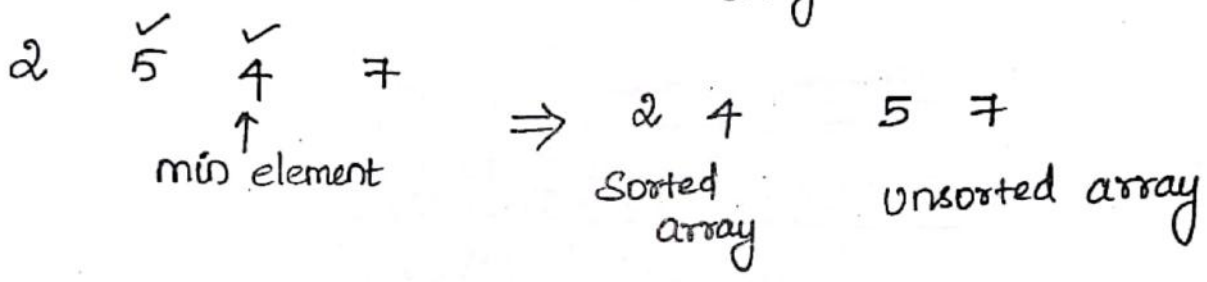 2 5 4 7
min element
⇒ 2 4 5 7
Sorted array
unsorted array